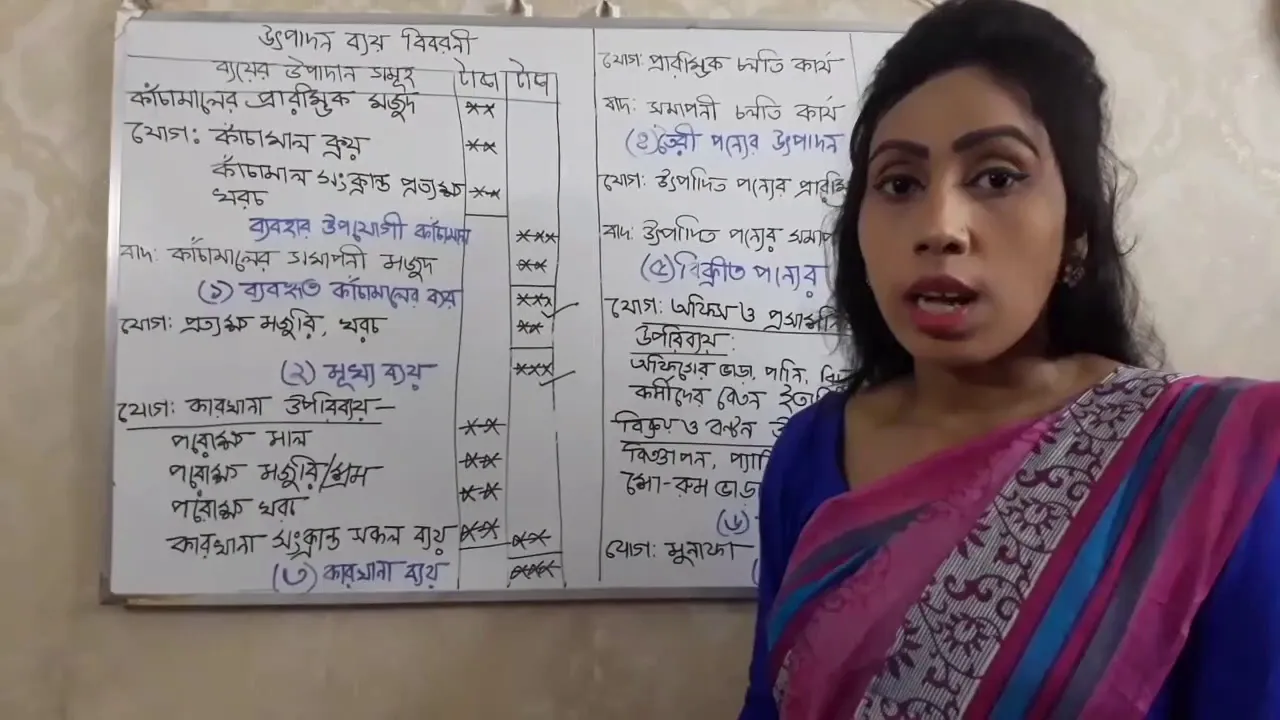 উৎপাদন ব্যয় বিবরনী
ব্যয়ের উপাদান সমূহ টাকা টাকা
কাঁচামালের প্রারম্ভিক মজুদ **
যোগ: কাঁচামাল ক্রয় **
কাঁচামাল সংক্রান্ত প্রত্যক্ষ
খরচ **
ব্যবহার উপযোগী কাঁচামাল ***
বাদ: কাঁচামালের সমাপনী মজুদ **
(১) ব্যবহৃত কাঁচামালের ব্যয় ***
যোগ: প্রত্যক্ষ মজুরি, খরচ **
(২) মূখ্য ব্যয় ***
যোগ: কারখানা উপরিব্যয়-
পরোক্ষ মাল **
পরোক্ষ মজুরি/শ্রম **
পরোক্ষ খরচ **
কারখানা সংক্রান্ত সকল ব্যয় ** **
(৩) কারখানা ব্যয় ***
যোগ: প্রারম্ভিক চলতি কার্য
বাদ: সমাপনী চলতি কার্য
(৪) তৈরী পন্যের উৎপাদন
যোগ: উৎপাদিত পন্যের
বাদ: উৎপাদিত পন্যের
(৫) বিক্রীত পন্যের
যোগ: অফিস ও
উপরিব্যয়:
অফিসের ভাড়া, পানি,
কর্মীদের বেতন
বিক্রয় ও বণ্টন
বিজ্ঞাপন,
শো-রুম ভাড়া
(৬)
যোগ: মুনাফা